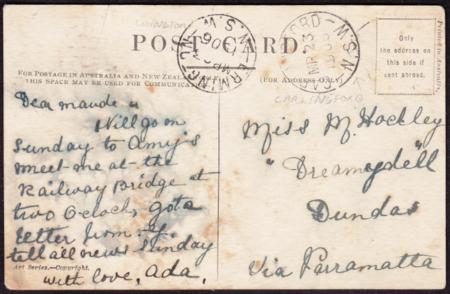 POST CARD.
FOR POSTAGE IN AUSTRALIA AND NEW
THIS SPACE MAY BE USED FOR COMMUNICATION
(FOR ADDRESS ONLY)
Only
the address on
this side if
sent abroad.
N.S.W.
N.S.W
MR 23
CARLINGFORD
Dear Maude
Will go on
Sunday to Amy's
meet me at the
Railway Bridge at
two o'clock, got a
letter from
tell all news Sunday
with love, Ada.
Art Series.—Copyright.
Miss M. Hockley
"Dreamydell"
Dundas
Via Parramatta